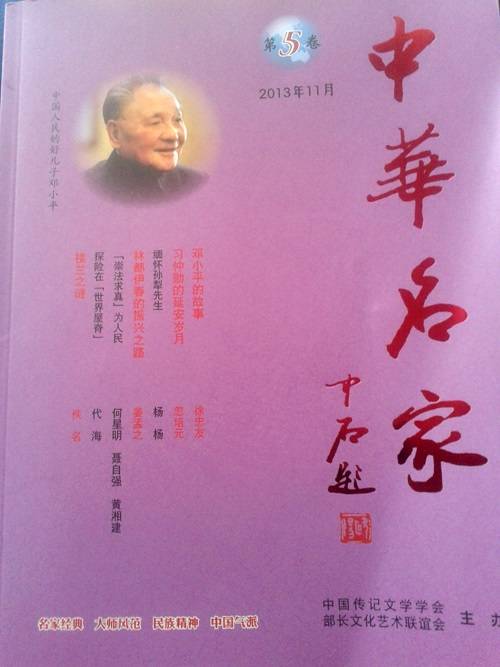 第5卷
2013年11月
中華名家
中石题
中国人民的好儿子邓小平
邓小平的故事 徐忠友
习仲勋的延安岁月 忽培元
缅怀孙犁先生 杨杨
林都伊春的振兴之路 姜孟之
「崇法求真」为人民 何星明 聂自强 黄湘建
探险在「世界屋脊」 代海
楼兰之谜 佚名
名家经典 大师风范 民族精神 中国气派
中国传记文学学会
部长文化艺术联谊会
主办